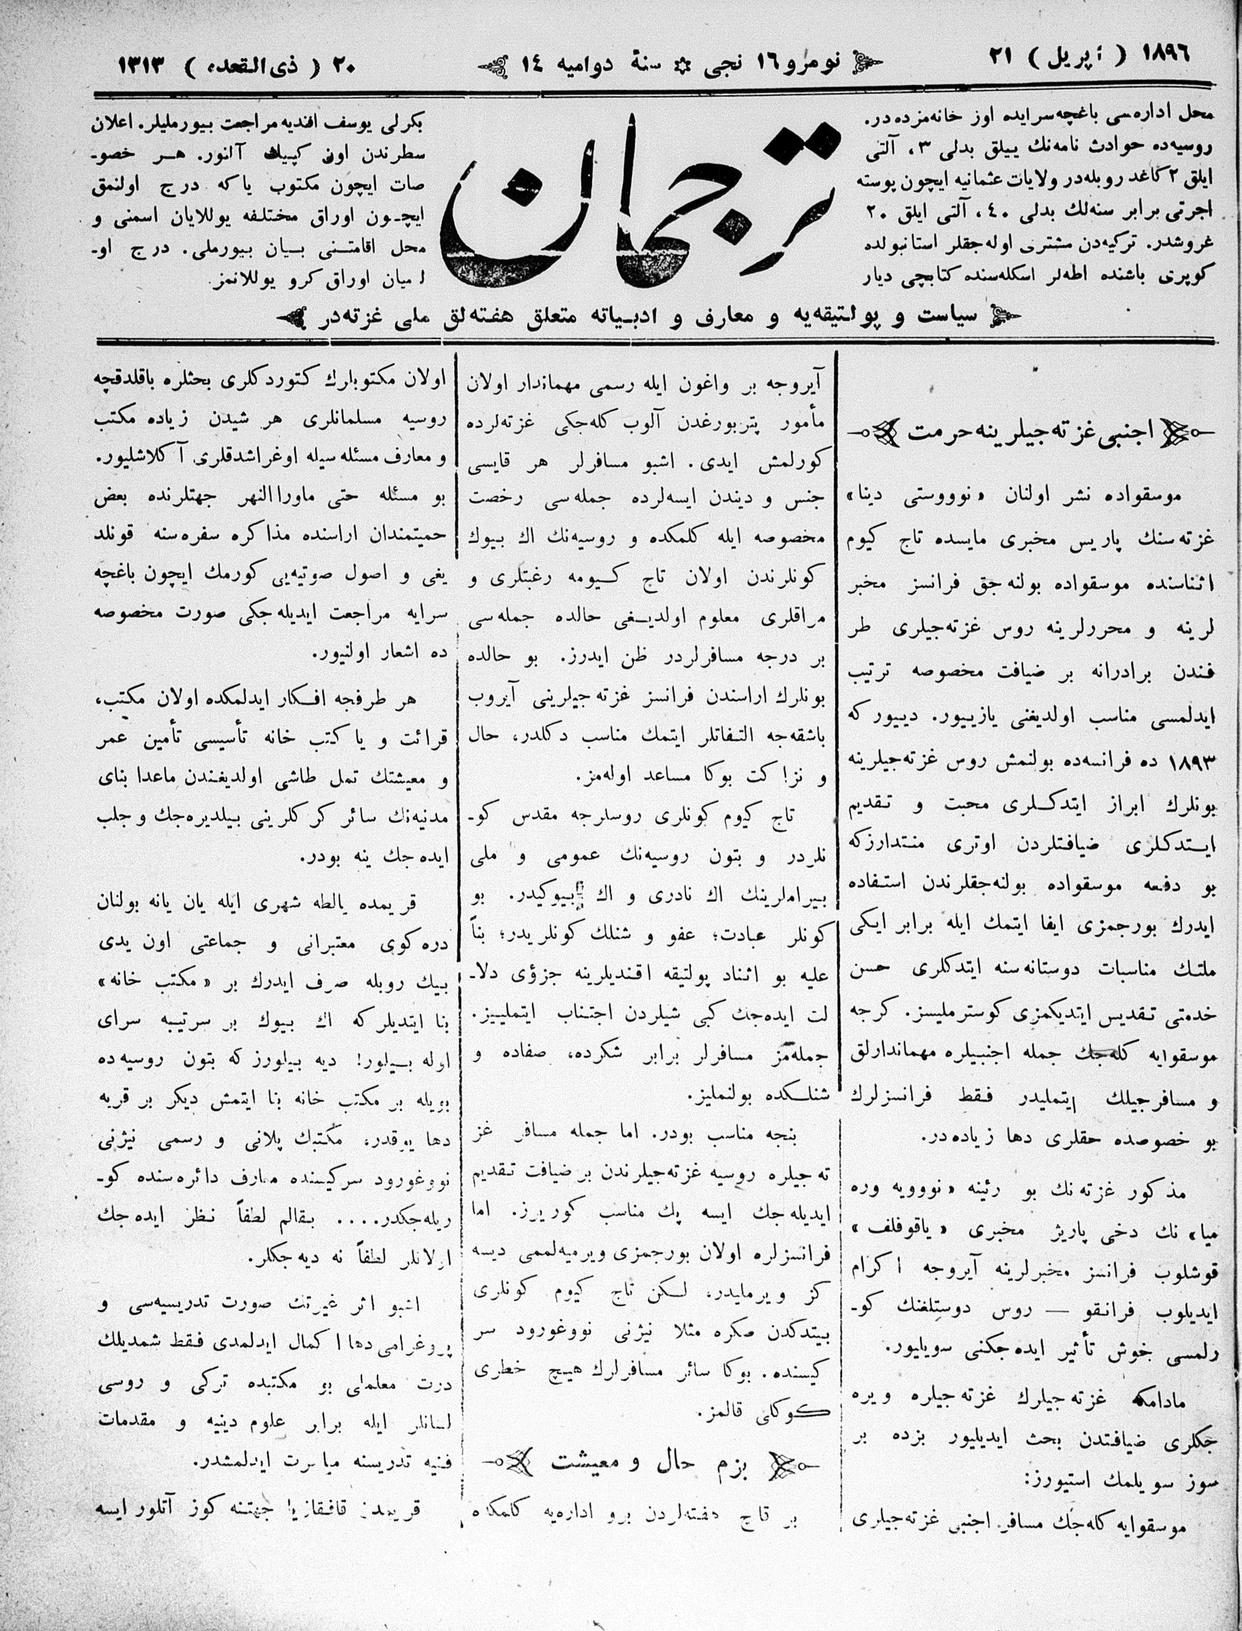 ١٨٩٦ ( آپریل ) ٢١
نومرو ١٦ نجی ✡ سنۀ دوامیه ١٤
٢٠ ( ذی القعده ) ١٣١٣
محل اداره‌سی باغچه‌سرایده اوز خانه‌مزده‌در.
روسیه‌ده حوادث نامه‌نك ییللق بدلی ٣، آلتی
ایلق ٢ كاغد روبله‌در ولایات عثمانیه ایچون پوسته
اجرتی برابر سنه‌لك بدلی ٤٠، آلتی ایلق ٢٠
غروشدر. تركیه‌دن مشتری اوله‌جقلر استانبولده
كوپری باشنده اطه‌لر اسكله‌سنده كتابچی دیار
ترجمان
بكرلی یوسف افندیه مراجعت بیورملیلر. اعلان
سطرندن اون كپیك آلنور. هر خصو-
صات ایچون مكتوب یاكه درج اولنمق
ایچون اوراق مختلفه یوللایان اسمنی و
محل اقامتنی بیان بیورملی. درج او-
لمیان اوراق كرو یوللانمز.
سیاست و پولتیقه‌یه و معارف و ادبیاته متعلق هفته‌لق ملی غزته‌در
اجنبی غزته‌جیلرینه حرمت
موسقواده نشر اولنان «نوووستی دینا»
غزته‌سنك پاریس مخبری مایسده تاج كیوم
اثناسنده موسقواده بولنه‌جق فرانسز مخبر
لرینه و محررلرینه روس غزته‌جیلری طر
فندن برادرانه بر ضیافت مخصوصه ترتیب
ایدلمسی مناسب اولدیغنی یازییور. دییوركه
١٨٩٣ ده فرانسه‌ده بولنمش روس غزته‌جیلرینه
بونلرك ابراز ایتدكلری محبت و تقدیم
ایتدكلری ضیافتلردن اوتری منتدارزكه
بو دفعه موسقواده بولنه‌جقلرندن استفاده
ایدرك بورجمزی ایفا ایتمك ایله برابر ایكی
ملتك مناسبات دوستانه‌سنه ایتدكلری حسن
خدمتی تقدیس ایتدیكمزی كوسترملیسز. كرجه
موسقوایه كله‌جك جمله اجنبیلره مهماندارلق
و مسافرجیلك ایتملیدر فقط فرانسزلرك
بو خصوصده حقلری دها زیاده‌در.
مذكور غزته‌نك بو رئینه «نوویه وره
میا» نك دخی پاریژ مخبری «یاقوفلف»
قوشلوب فرانسز مخبرلرینه آیروجه اكرام
ایدیلوب فرانقو — روس دوستلغنك كو-
رلمسی خوش تأثیر ایده‌جكنی سویلیور.
مادامكه غزته‌جیلرك غزته‌جیلره ویره
جكلری ضیافتدن بحث ایدیلیور بزده بر
سوز سویلمك استیورز:
موسقوایه كله‌جك مسافر اجنبی غزته‌جیلری
آیروجه بر واغون ایله رسمی مهماندار اولان
مأمور پتربورغدن آلوب كله‌جكی غزته‌لرده
كورلمش ایدی. اشبو مسافرلر هر قایسی
جنس و دیندن ایسه‌لرده جمله‌سی رخصت
مخصوصه ایله كلمكده و روسیه‌نك اك بیوك
كونلرندن اولان تاج كیومه رغبتلری و
مراقلری معلوم اولدیغی حالده جمله‌سی
بر درجه مسافرلردر ظن ایدرز. بو حالده
بونلرك اراسندن فرانسز غزته‌جیلرینی آیروب
باشقه‌جه التفاتلر ایتمك مناسب دكلدر، حال
و نزاكت بوكا مساعد اوله‌مز.
تاج كیوم كونلری روسلرجه مقدس كو-
نلردر و بتون روسیه‌نك عمومی و ملی
بیراملرینك اك نادری و اك بیوكیدر. بو
كونلر عبادت؛ عفو و شنلك كونلریدر؛ بنأ
علیه بو اثناد پولتیقه اقندیلرینه جزؤی دلا-
لت ایده‌جك كبی شیلردن اجتناب ایتملییز.
جمله‌مز مسافرلر برابر شكرده، صفاده و
شنلكده بولنملیز.
بنجه مناسب بودر. اما جمله مسافر غز
ته‌جیلره روسیه غزته‌جیلرندن بر ضیافت تقدیم
ایدیله‌جك ایسه پك مناسب كوریرز. اما
فرانسزلره اولان بورجمزی ویرمیه‌لممی دیسه
كز ویرمایدر، لكن تاج كیوم كونلری
بیتدكدن صكره مثلا نیژنی نووغورود سر
كیسنده. بوكا سائر مسافرلرك هیچ خطری
كوكلی قالمز.
بزم حال و معیشت
بر قاچ هفته‌لردن برو اداره‌یه كلمكده
اولان مكتوبلرك كتوردكلری بحثلره باقلدقچه
روسیه مسلمانلری هر شیدن زیاده مكتب
و معارف مسئله‌سیله اوغراشدقلری آكلاشلیور.
بو مسئله حتی ماورا النهر جهتلرنده بعض
حمیتمندان اراسنده مذاكره سفره‌سنه قونلد
یغی و اصول صوتیه‌یی كورمك ایچون باغچه
سرایه مراجعت ایدیله‌جكی صورت مخصوصه
ده اشعار اولنیور.
هر طرفجه افكار ایدلمكده اولان مكتب،
قرائت و یا كتب خانه تأسیسی تأمین عمر
و معیشتك تمل طاشی اولدیغندن ماعدا بنای
مدنیه‌نك سائر كركلرینی بیلدیره‌جك و جلب
ایده‌جك ینه بودر.
قریمده یالطه شهری ایله یان یانه بولنان
دره‌كوی معتبرانی و جماعتی اون یدی
بیك روبله صرف ایدرك بر «مكتب خانه»
بنا ایتدیلركه اك بیوك بر سرتیبه سرای
اوله بیلور! دیه بیلورز كه بتون روسیه‌ده
بویله بر مكتب خانه بنا ایتمش دیكر بر قریه
دها یوقدر، مكتبك پلانی و رسمی نیژنی
نووغورود سركیسنده معارف دائره‌سنده كو-
ریله‌جكدر.... بقالم لطفاً نظر ایده‌جك
اولانلر لطفاً نه دیه‌جكلر.
اشبو اثر غیرتك صورت تدریسیه‌سی و
پروغرامی دها اكمال ایدلمدی فقط شمدیلك
درت معلملی بو مكتبده تركی و روسی
لسانلر ایله برابر علوم دینیه و مقدمات
فنیه تدریسنه مباشرت ایدلمشدر.
قریمدن قافقازیا جهتنه كوز آتلور ایسه